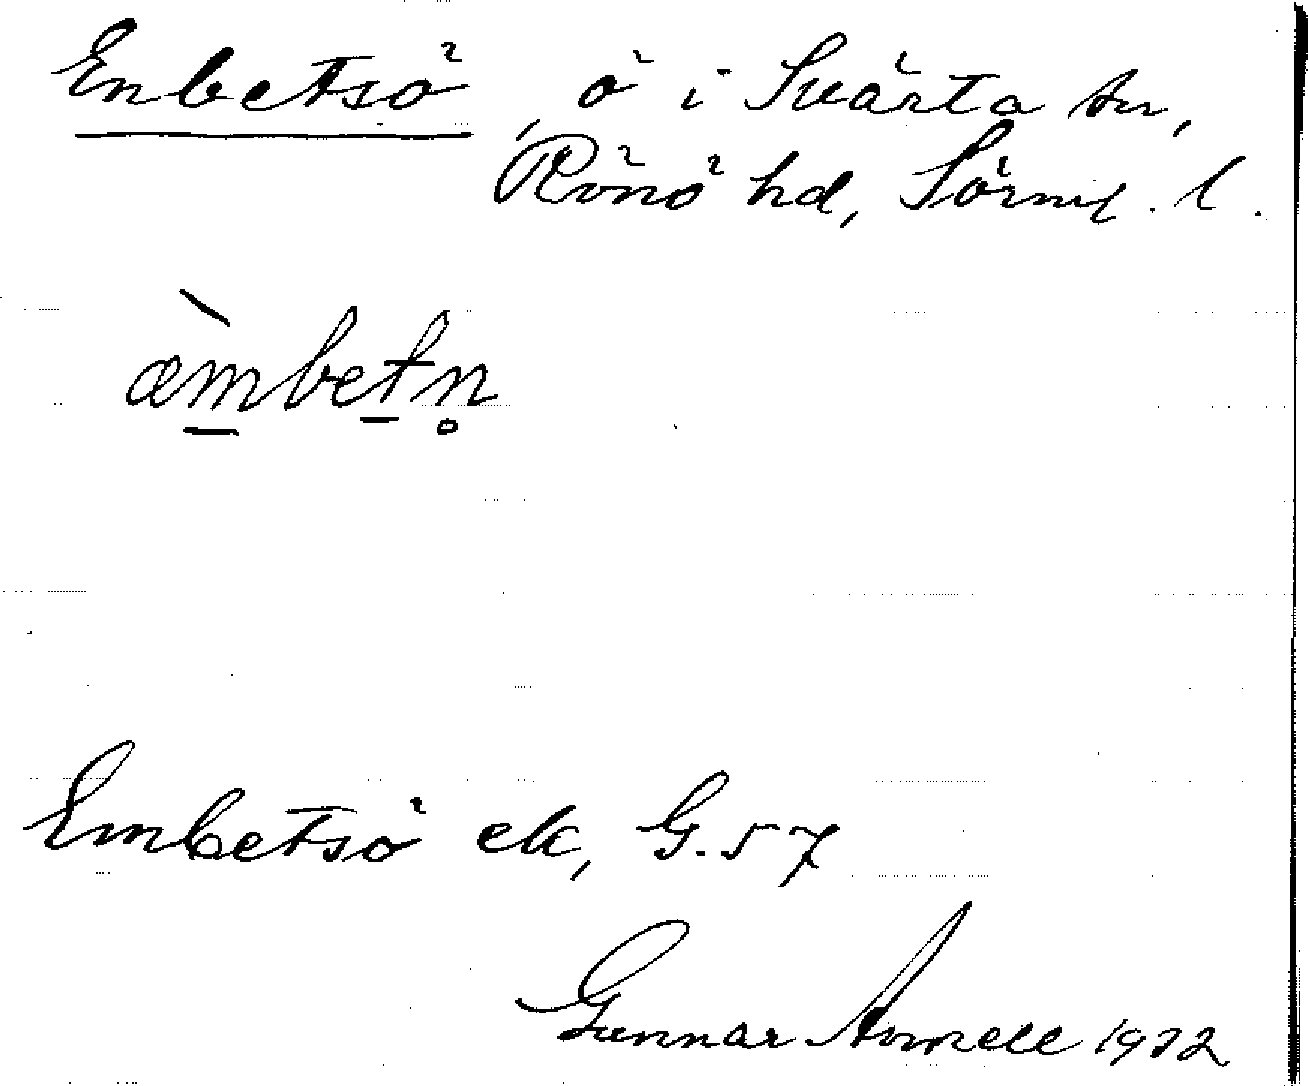 Enbetsö, ö i Svärta sn,
Rönö hd, Sörml. l.
æ̀m̲bet̲n̥
Embetsö ek, G. 57
Gunnar 1932